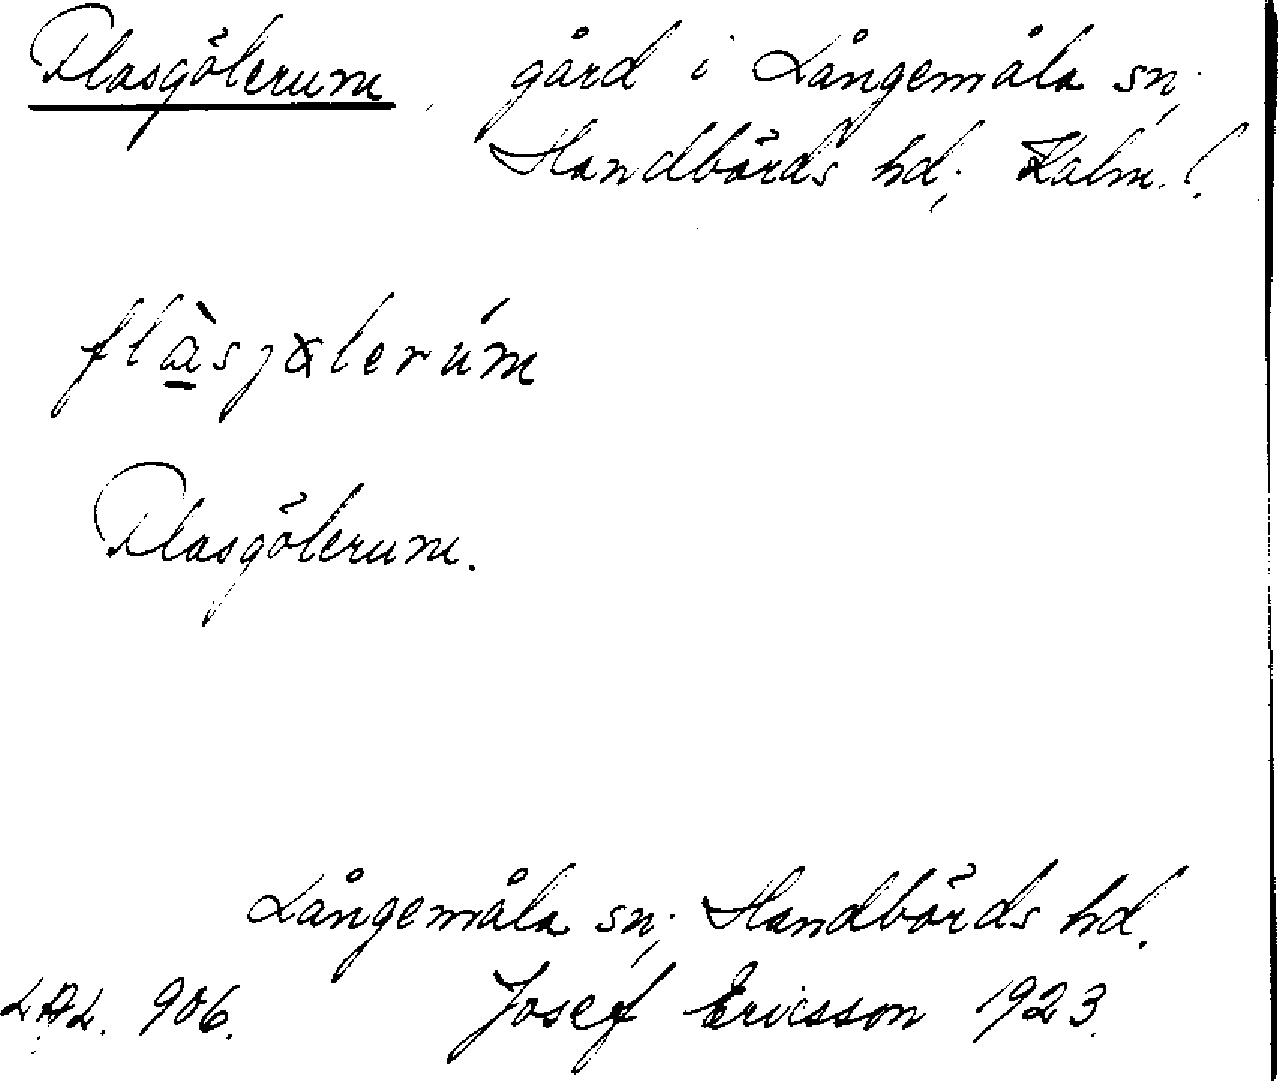 Flasgölerum, gård i Långemåla sn;
Handbörds hd; Kalm. l.
flàsjölerúm
Flasgölerum.
Långemåla sn; Handbörds hd.
LAL. 906. Josef Ericsson 1923.